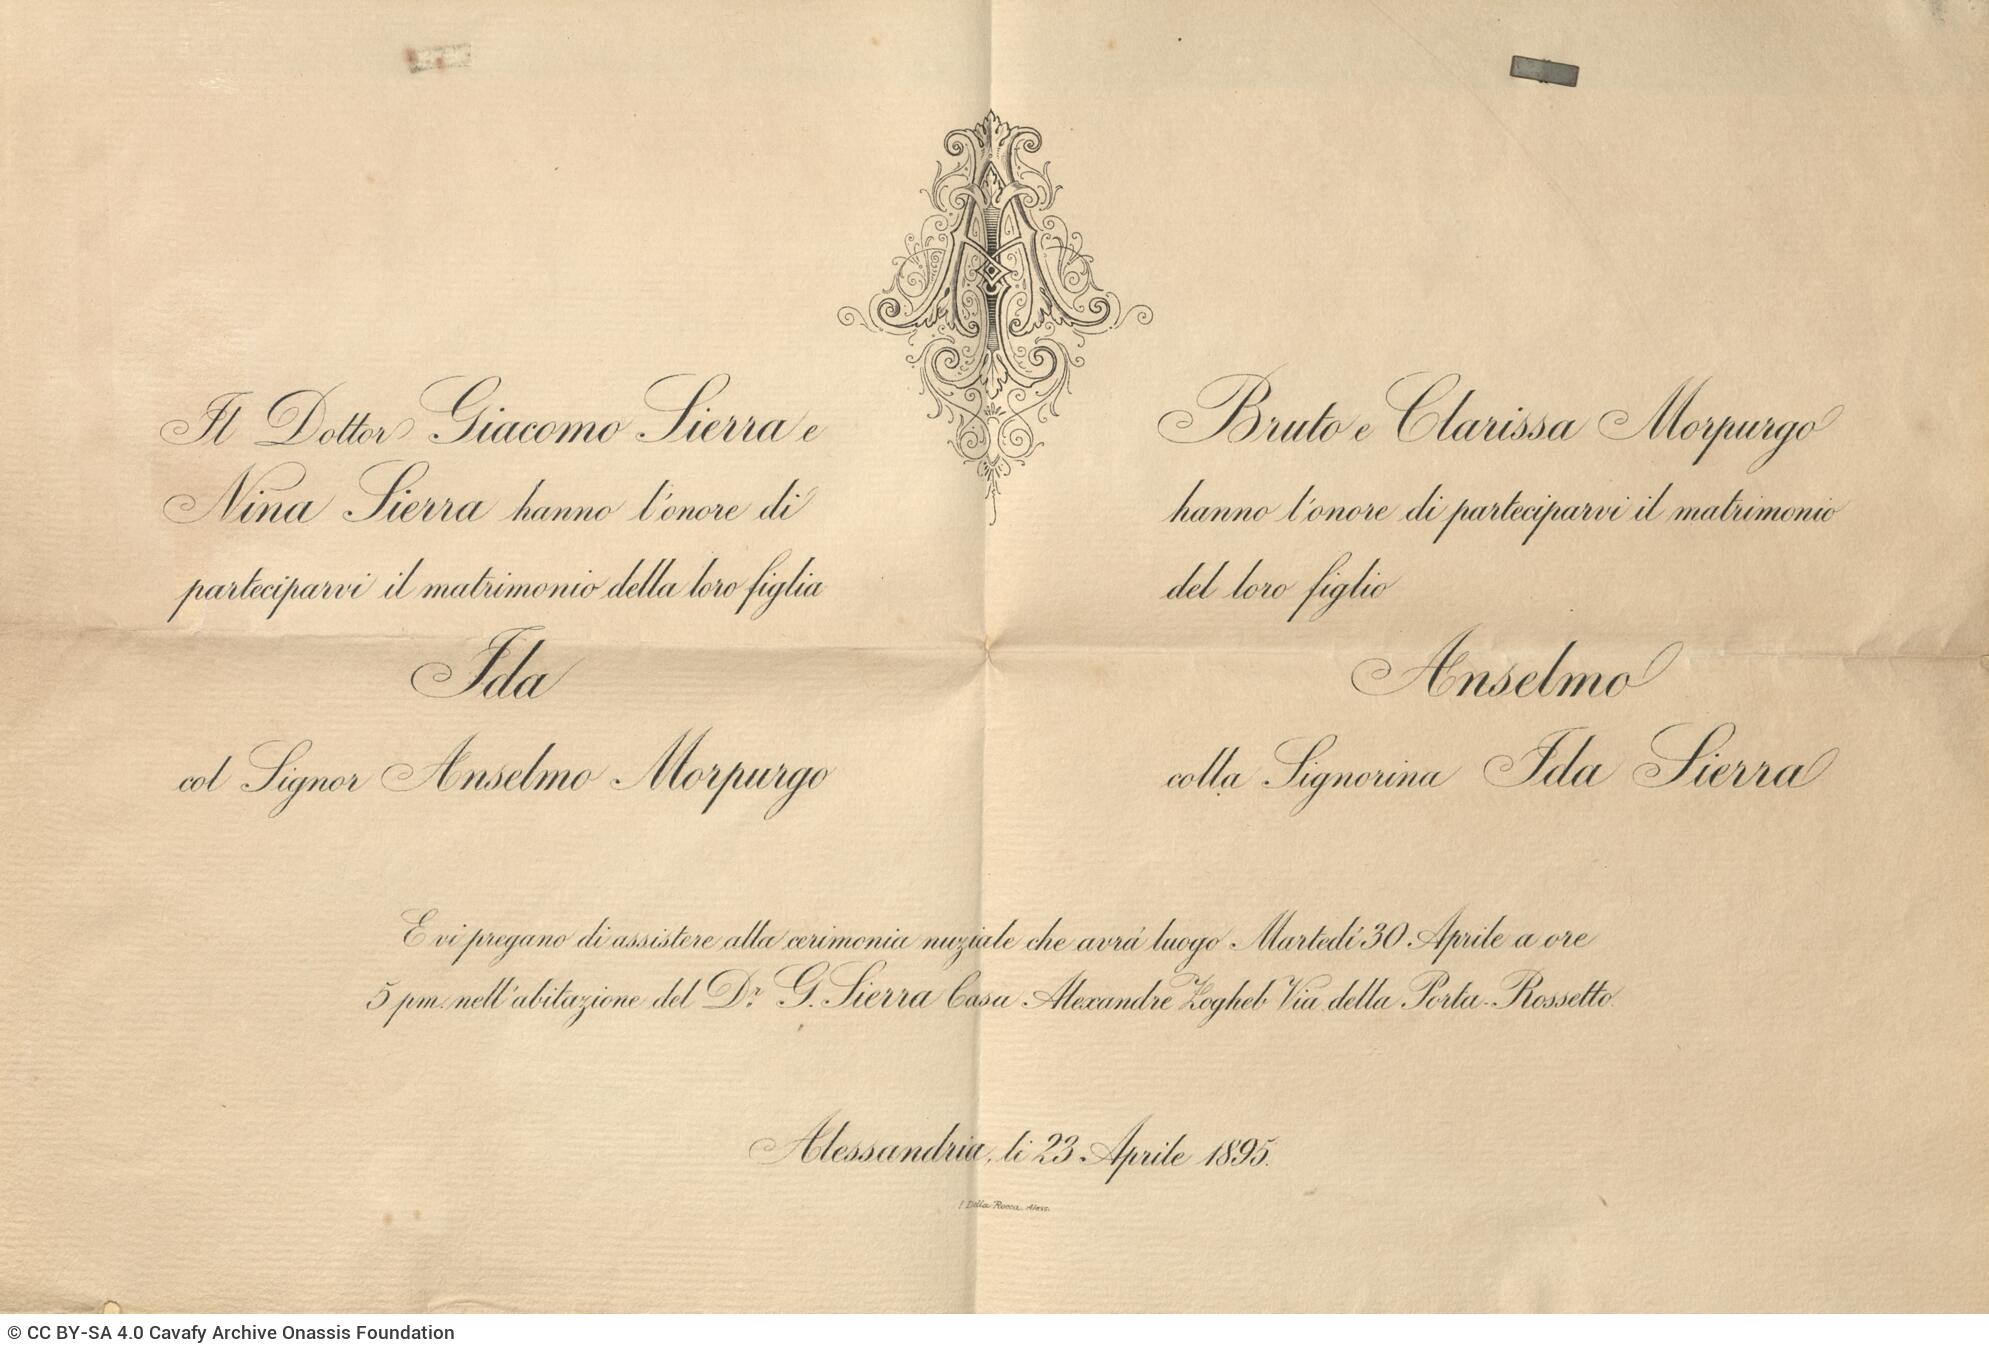 Il Dottor Giacomo Sierra e
Nina Sierra hanno l'onore di
parteciparvi il matrimonio della loro figlia
Ida
col Signor Anselmo Morpurgo
Bruto e Clarissa Morpurgo
hanno l'onore di parteciparvi il matrimonio
del loro figlio
Anselmo
colla Signorina Ida Sierra
E vi pregano di assistere alla cerimonia nuziale che avrà luogo Martedì 30 Aprile a ore
5 pm. nell'abitazione del Dr. G. Sierra Casa Alexandre Zogheb Via della Porta-Rossetto.
Alessandria, li 23 Aprile 1895.
Della Rocca. Aless.
© CC BY-SA 4.0 Cavafy Archive Onassis Foundation